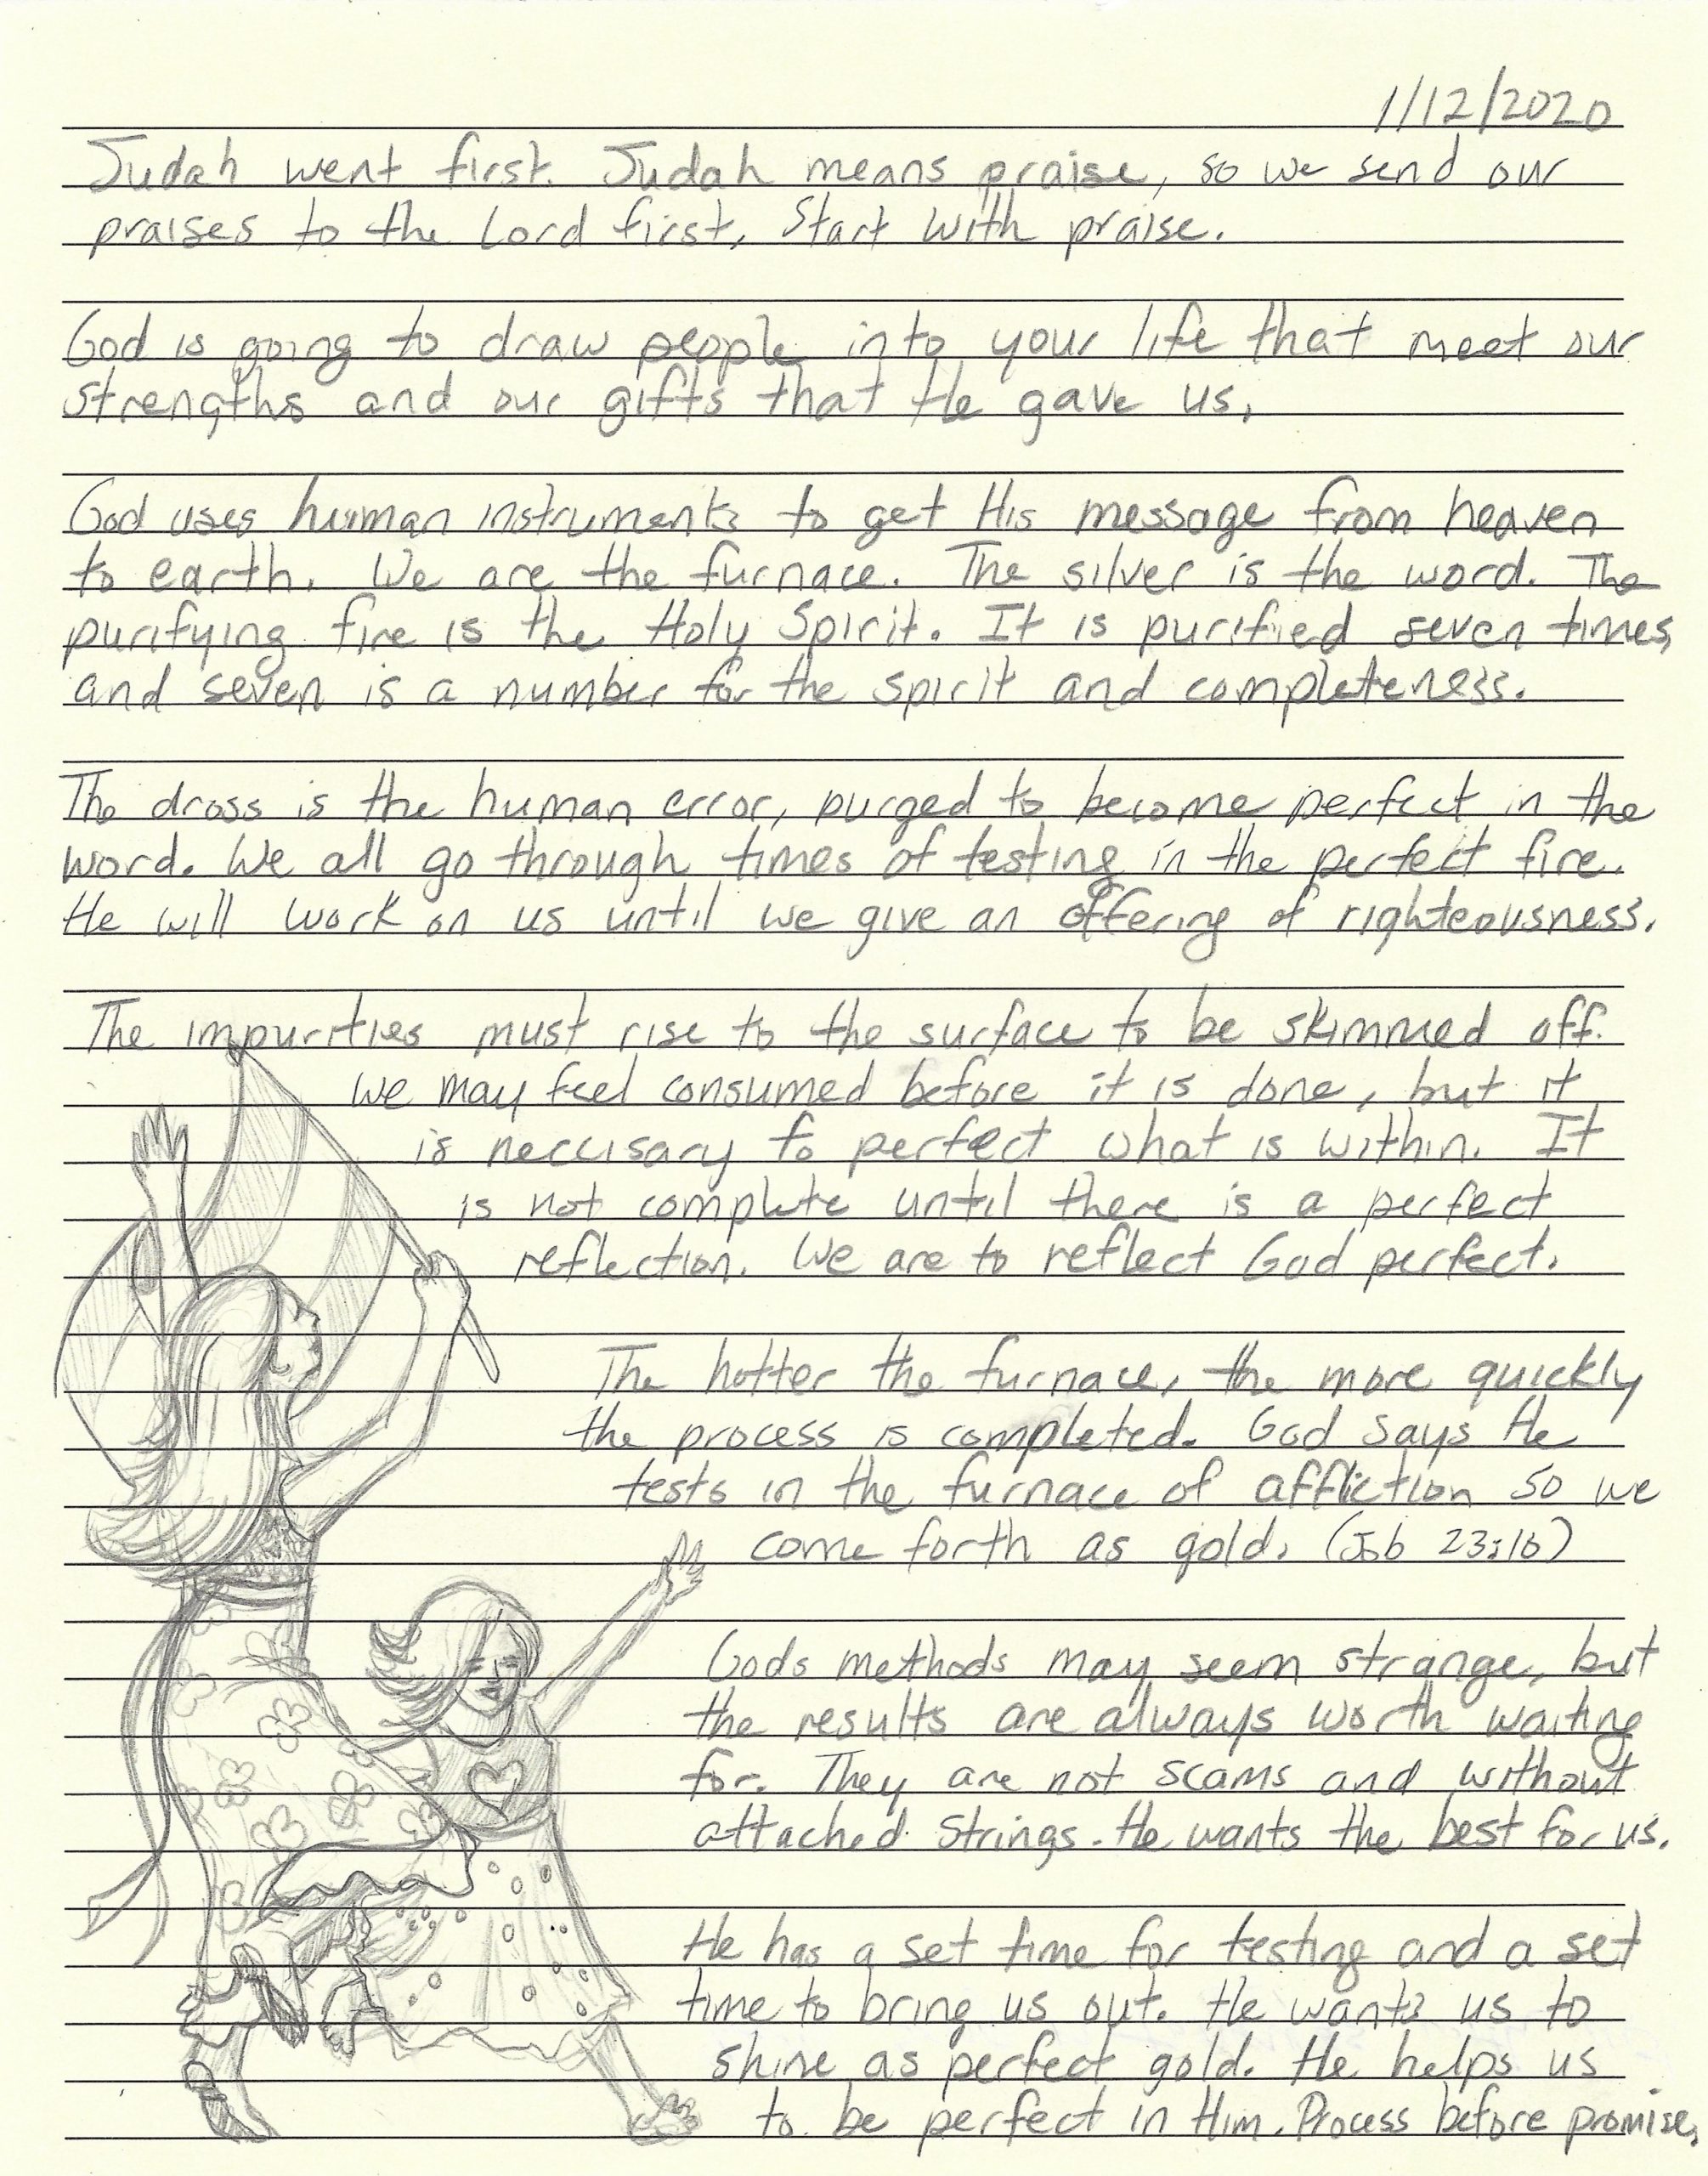 1/12/2020
Judah went first. Judah means praise, so we send our
praises to the Lord first. Start with praise.
God is going to draw people into your life that meet our
strengths and our gifts that He gave us.
God uses human instruments to get His message from heaven
to earth. We are the furnace. The silver is the word. The
purifying fire is the Holy Spirit. It is purified seven times,
and seven is a number for the spirit and completeness.
The dross is the human error, purged to become perfect in the
word. We all go through times of testing in the perfect fire.
He will work on us until we give an offering of righteousness.
The impurities must rise to the surface to be skimmed off.
We may feel consumed before it is done, but it
is neccisary to perfect what is within. It
is not complete until there is a perfect
reflection. We are to reflect God perfect.
The hotter the furnace, the more quickly
the process is completed. God says He
tests in the furnace of affliction so we
come forth as gold. (Job 23:10)
Gods methods may seem strange, but
the results are always worth waiting
for. They are not scams and without
attached strings. He wants the best for us.
He has a set time for testing and a set
time to bring us out. He wants us to
shine as perfect gold. He helps us
to be perfect in Him. Process before promise.